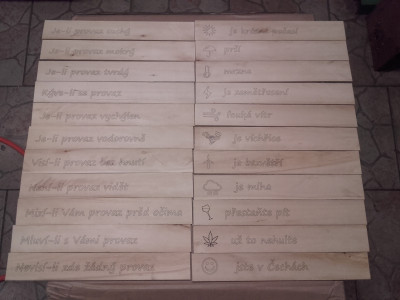 Je-li provaz suchý je krásné počasí
Je-li provaz mokrý prší
Je-li provaz tvrdý mrzne
Kýve-li se provaz je zemětřesení
Je-li provaz vychýlen fouká vítr
Je-li provaz vodorovně je vichřice
Visí-li provaz bez hnutí je bezvětří
Není-li provaz vidět je mlha
Mizí-li Vám provaz před očima přestaňte pít
Mluví-li s Vámi provaz už to nehulte
Nevisí zde žádný provaz jste v Čechách